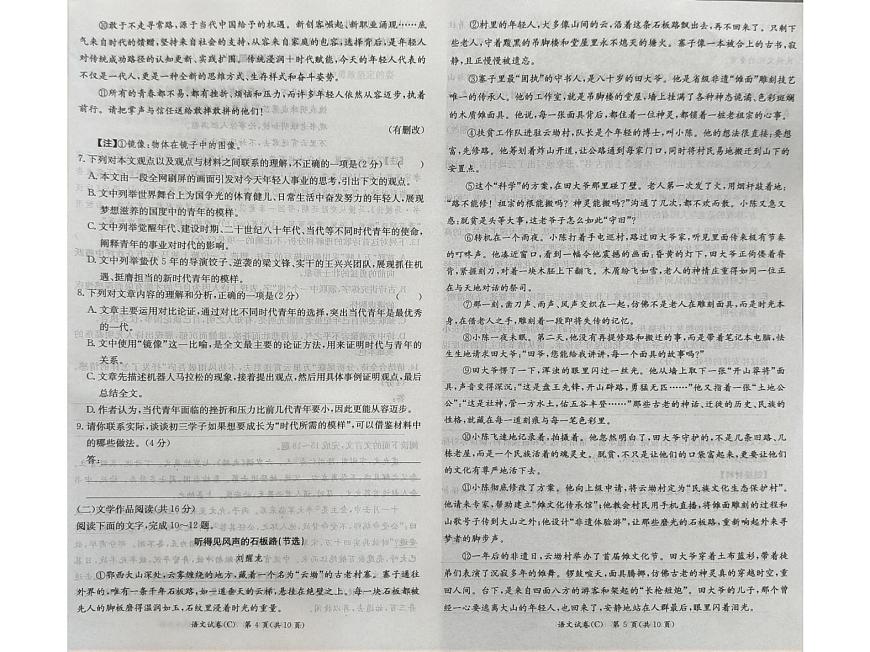 ⑩敢于不走寻常路,源于当代中国给予的机遇。新创客崛起、新职业涌现……底
气来自时代的馈赠,坚持来自社会的支持,从容来自家庭的包容,选择背后,是年轻人
对传统成功路径的认知更新、实践扩围。传统浸润+时代赋能,今天的年轻人代表的
不仅是一代人,更是一种全新的思维方式、生存样式和奋斗姿势。
⑪所有的青春都不易,都有挫折、烦恼和压力,而许多年轻人依然从容迈步,执着
前行。请把掌声与信任送给敢拼敢拼的他们!
(有删改)
【注】①镜像:物体在镜子中的图像。
7. 下列对本文观点以及观点与材料之间联系的理解,不正确的一项是(2分) ( )
A. 本文由一段全网刷屏的画面引发对今天年轻人事业的思考,引出下文的观点。
B. 文中列举世界舞台上为国争光的体育健儿、日常生活中奋发努力的年轻人,展现
梦想滋养的国度中的青年的模样。
C. 文中列举觉醒年代、建设时期、二十世纪八十年代、当代等不同时代青年的使命,
阐释青年的事业对时代的影响。
D. 文中列举蛰伏5年的导演饺子、迎袭的梁文锋、实干的王兴兴团队,展现抓住机
遇、挺膺担当的新时代青年的模样。
8. 下列对文章内容的理解和分析,正确的一项是(2分) ( )
A. 文章主要运用对比论证,通过对比不同时代青年的选择,突出当代青年是最优秀
的一代。
B. 文中使用“镜像”这一比喻,是全文最主要的论证方法,用来证明时代与青年的
关系。
C. 文章先描述机器人马拉松的现象,接着提出观点,然后用具体事例证明观点,最后
总结全文。
D. 作者认为,当代青年面临的挫折和压力比前几代青年要小,因此更能从容迈步。
9. 请你联系实际,谈谈初三学子如果想要成长为“时代所需的模样”,可以借鉴材料中
的哪些做法。(4分)
答:
(二)文学作品阅读(共16分)
阅读下面的文字,完成10~12题。
听得见风声的石板路(节选)
刘耀龙
①鄂西大山深处,云雾缠绕的地方,藏着一个名为“云坳”的古老村寨。寨子通往
外界的,唯有一条千年石板路,如一道垂天的云梯,悬挂在绝壁之上。每一块石板都被
先人的脚板磨得温润如玉,石纹里浸着时光的重量。
语文试卷(C) 第4页(共10页)
②村里的年轻人,大多像山间的云,沿着这条石板路飘出去,再不回来了。只剩下
些老人,守着黢黑的吊脚楼和堂屋里永不熄灭的塘火。寨子像一本被合上的古书,寂
静,且正慢慢被遗忘。
③寨子里最“固执”的守书人,是八十岁的田大爷。他是省级非遗“傩面”雕刻技艺
唯一的传承人。他的工作室,就是吊脚楼的堂屋,墙上挂满了各种神态诡谲、色彩斑斓
的木质傩面具。他说,每一张面具背后,都住着一位神灵,都锁着一桩老祖宗的心事。
④扶贫工作队进驻云坳村,队长是个年轻的博士,叫小陈。他的想法很直接:要想
富,先修路。他筹划着炸山开道,让公路通到每家门口,同时将村民易地搬迁到山下的
安置点。
⑤这个“科学”的方案,在田大爷那里碰了壁。老人第一次发了火,用烟杆敲着地:
“路不能修!祖宗的根能搬吗?神灵能搬吗?”沟通了几次,都不欢而散。小陈又急又
惑:脱贫是头等大事,这老爷子怎么如此“守旧”?
⑥转机在一个雨夜。小陈打着手电巡村,路过田大爷家,听见里面传来极有节奏
的叮咚声。他凑近窗口,看到一幅令他震撼的画面:昏黄的灯下,田大爷正佝偻着脊
背,紧握刻刀,对着一块木胚上下翻飞。木屑纷飞如雪,老人的神情庄重得如同一位正
在与天地对话的祭司。
⑦那一刻,凿刀声、雨声、风声交织在一起,仿佛不是老人在雕刻面具,而是时光本
身,在借老人之手,雕刻着一段即将失传的记忆。
⑧小陈一夜未眠。第二天,他没有再提修路和搬迁的事,而是带着笔记本电脑,怯
生生地请求田大爷:“田爷,您能给我讲讲,每一个面具的故事吗?”
⑨田大爷愣了一下,浑浊的眼里闪过一丝光。他从墙上取下一张“开山莽将”面
具,声音变得深沉:“这是盘王先锋,开山辟路,勇猛无匹……”他又指着一张“土地公
公”:“这是社神,管一方水土,佑五谷丰登……”那些古老的神话、迁徙的历史、民族的
性格,就藏在每一道刻痕与每一笔色彩里。
⑩小陈飞速地记录着,拍摄着。他忽然明白了,田大爷守护的,不是几条旧路、几
栋老屋,而是一个民族活着的魂灵史。脱贫,不只是让他们的口袋富起来,更要让他们
的文化有尊严地活下去。
⑪小陈彻底修改了方案。他向上级申请,将云坳村定为“民族文化生态保护村”。
他请来专家,帮助建立“傩文化传承馆”;他教会村民用手机直播,将傩面雕刻的过程和
山歌号子传到大山之外;他设计“非遗体验游”,让那些磨光的石板路,重新响起外来寻
梦者的脚步声。
⑫一年后的非遗日,云坳村举办了首届傩文化节。田大爷穿着土布蓝衫,带着徒
弟们表演了沉寂多年的傩舞。锣鼓喧天,面具腾挪,仿佛古老的神灵真的穿越时空,重
回人间。台下,是来自四面八方的游客和架起的“长枪短炮”。田大爷的儿子,那个曾
经一心要逃离大山的年轻人,也回来了,安静地站在人群最后,眼里闪着泪光。
语文试卷(C) 第5页(共10页)